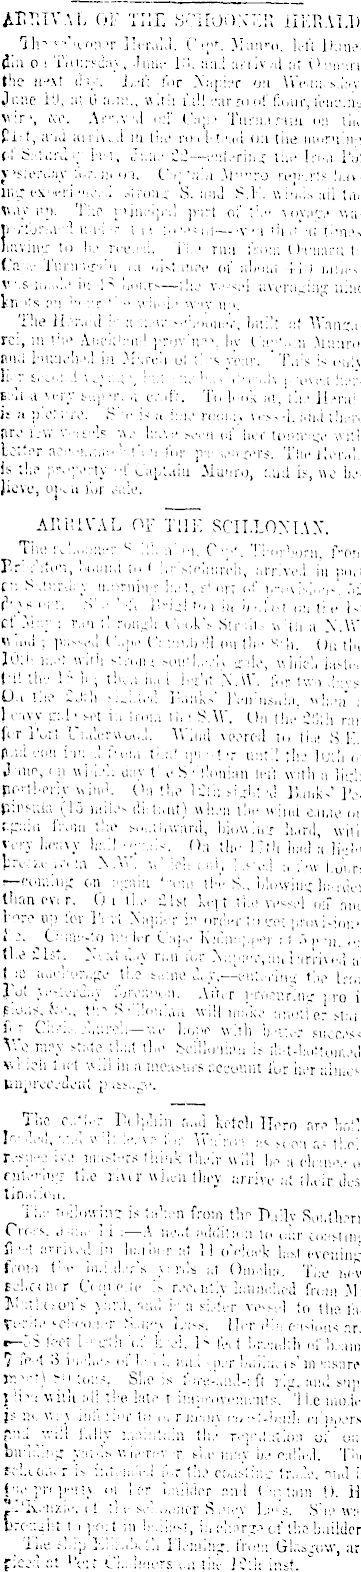 ARRIVAL OF THE SCHOONER HERALD
The schooner Herald, Capt. Munro, left Dune-
din on Thursday, June 13, and arrived at Oamaru
the next day. Left for Napier on Wednesday
June 19, at 6 a.m., with full cargo of flour, fencing
wire, &c. Arrived off Cape Turnagain on the
21st, and arrived in the roadstead on the morning
of Saturday last, June 22—entering the Iron Pot
yesterday forenoon. Captain Munro reports hav-
ing experienced strong S. and S.E. winds all the
way up. The principal part of the voyage was
performed under the foresail—even that at times
having to be reefed. The run from Oamaru to
Cape Turnagain (a distance of about miles
was made in 48 hours—the vessel averaging nine
knots an hour the whole way up.
The Herald is a new schooner, built at Wanga-
rei, in the Auckland province, by Captain Munro
and launched in March of this year. This is only
her second voyage, but she has already proved her-
self a very superior craft. To look at, the Herald
is a picture. She is a fine roomy vessel, and there
are few vessels we have seen of her tonnage with
better accommodation for passengers. The Herald
is the property of Captain Munro, and is, we be-
lieve, open for sale.
ARRIVAL OF THE SCILLONIAN.
The schooner Scillonian, Capt. Thorborn, from
Brighton, bound to Christchurch, arrived in port
on Saturday morning last, short of provisions, 52
days out. She left Brighton in ballast on the 1st
of May; ran through Cook's Straits with a N.W.
wind; passed Cape Campbell on the 8th. On the
10th met with strong southerly gale, which lasted
till the 18th; then had light N.W. for two days.
On the 20th sighted Banks' Peninsula, when a
heavy gale set in from the S.W. On the 26th ran
for Port Underwood. Wind veered to the S.E.
and continued from that quarter until the 10th of
June, on which day the Scillonian left with a light
northerly wind. On the 12th sighted Banks' Pe-
ninsula (15 miles distant) when the wind came on
again from the southward, blowing hard, with
very heavy hail squalls. On the 17th had a light
breeze from N.W. which only lasted a few hours
—coming on again from the S., blowing harder
than ever. On the 21st kept the vessel off and
bore up for Port Napier in order to get provisions
&c. Came-to under Cape Kidnapper at 5 p.m. on
the 21st. Next day ran for Napier, and arrived at
the anchorage the same day,—entering the Iron
Pot yesterday forenoon. After procuring provi-
sions, &c., the Scillonian will make another start
for Christchurch—we hope with better success.
We may state that the Scillonian is flat-bottomed
which fact will in a measure account for her almost
unprecedent passage.
The cutter Dolphin and ketch Hero are both
loaded, and will leave for Wairoa as soon as their
respective masters think their will be a chance of
entering the river when they arrive at their des-
tination.
The following is taken from the Daily Southern
Cross, June 11:—A neat addition to our coasting
fleet arrived in harbor at 11 o'clock last evening
from the builder's yards at Omaha. The new
schooner Coquette is recently launched from Mr
Matheson's yard, and is a sister vessel to the fa-
vorite schooner Saucy Lass. Her dimensions are
—58 feet length of keel, 18 feet breadth of beam
7 feet 3 inches of hold, and (per builders' measure-
ment) tons. She is fore-and-aft rig, and sup-
plied with all the latest improvements. The model
is no way inferior to our many coast-built clippers
and will fully maintain the reputation of our
building yards wherever she may be called. The
schooner is intended for the coasting trade, and is
the property of her builder and Captain D. H.
M'Kenzie, of the schooner Saucy Lass. She was
brought to port in ballast, in charge of the builder.
The ship Elizabeth Fleming, from Glasgow, ar-
rived at Port Chalmers on the 12th inst.